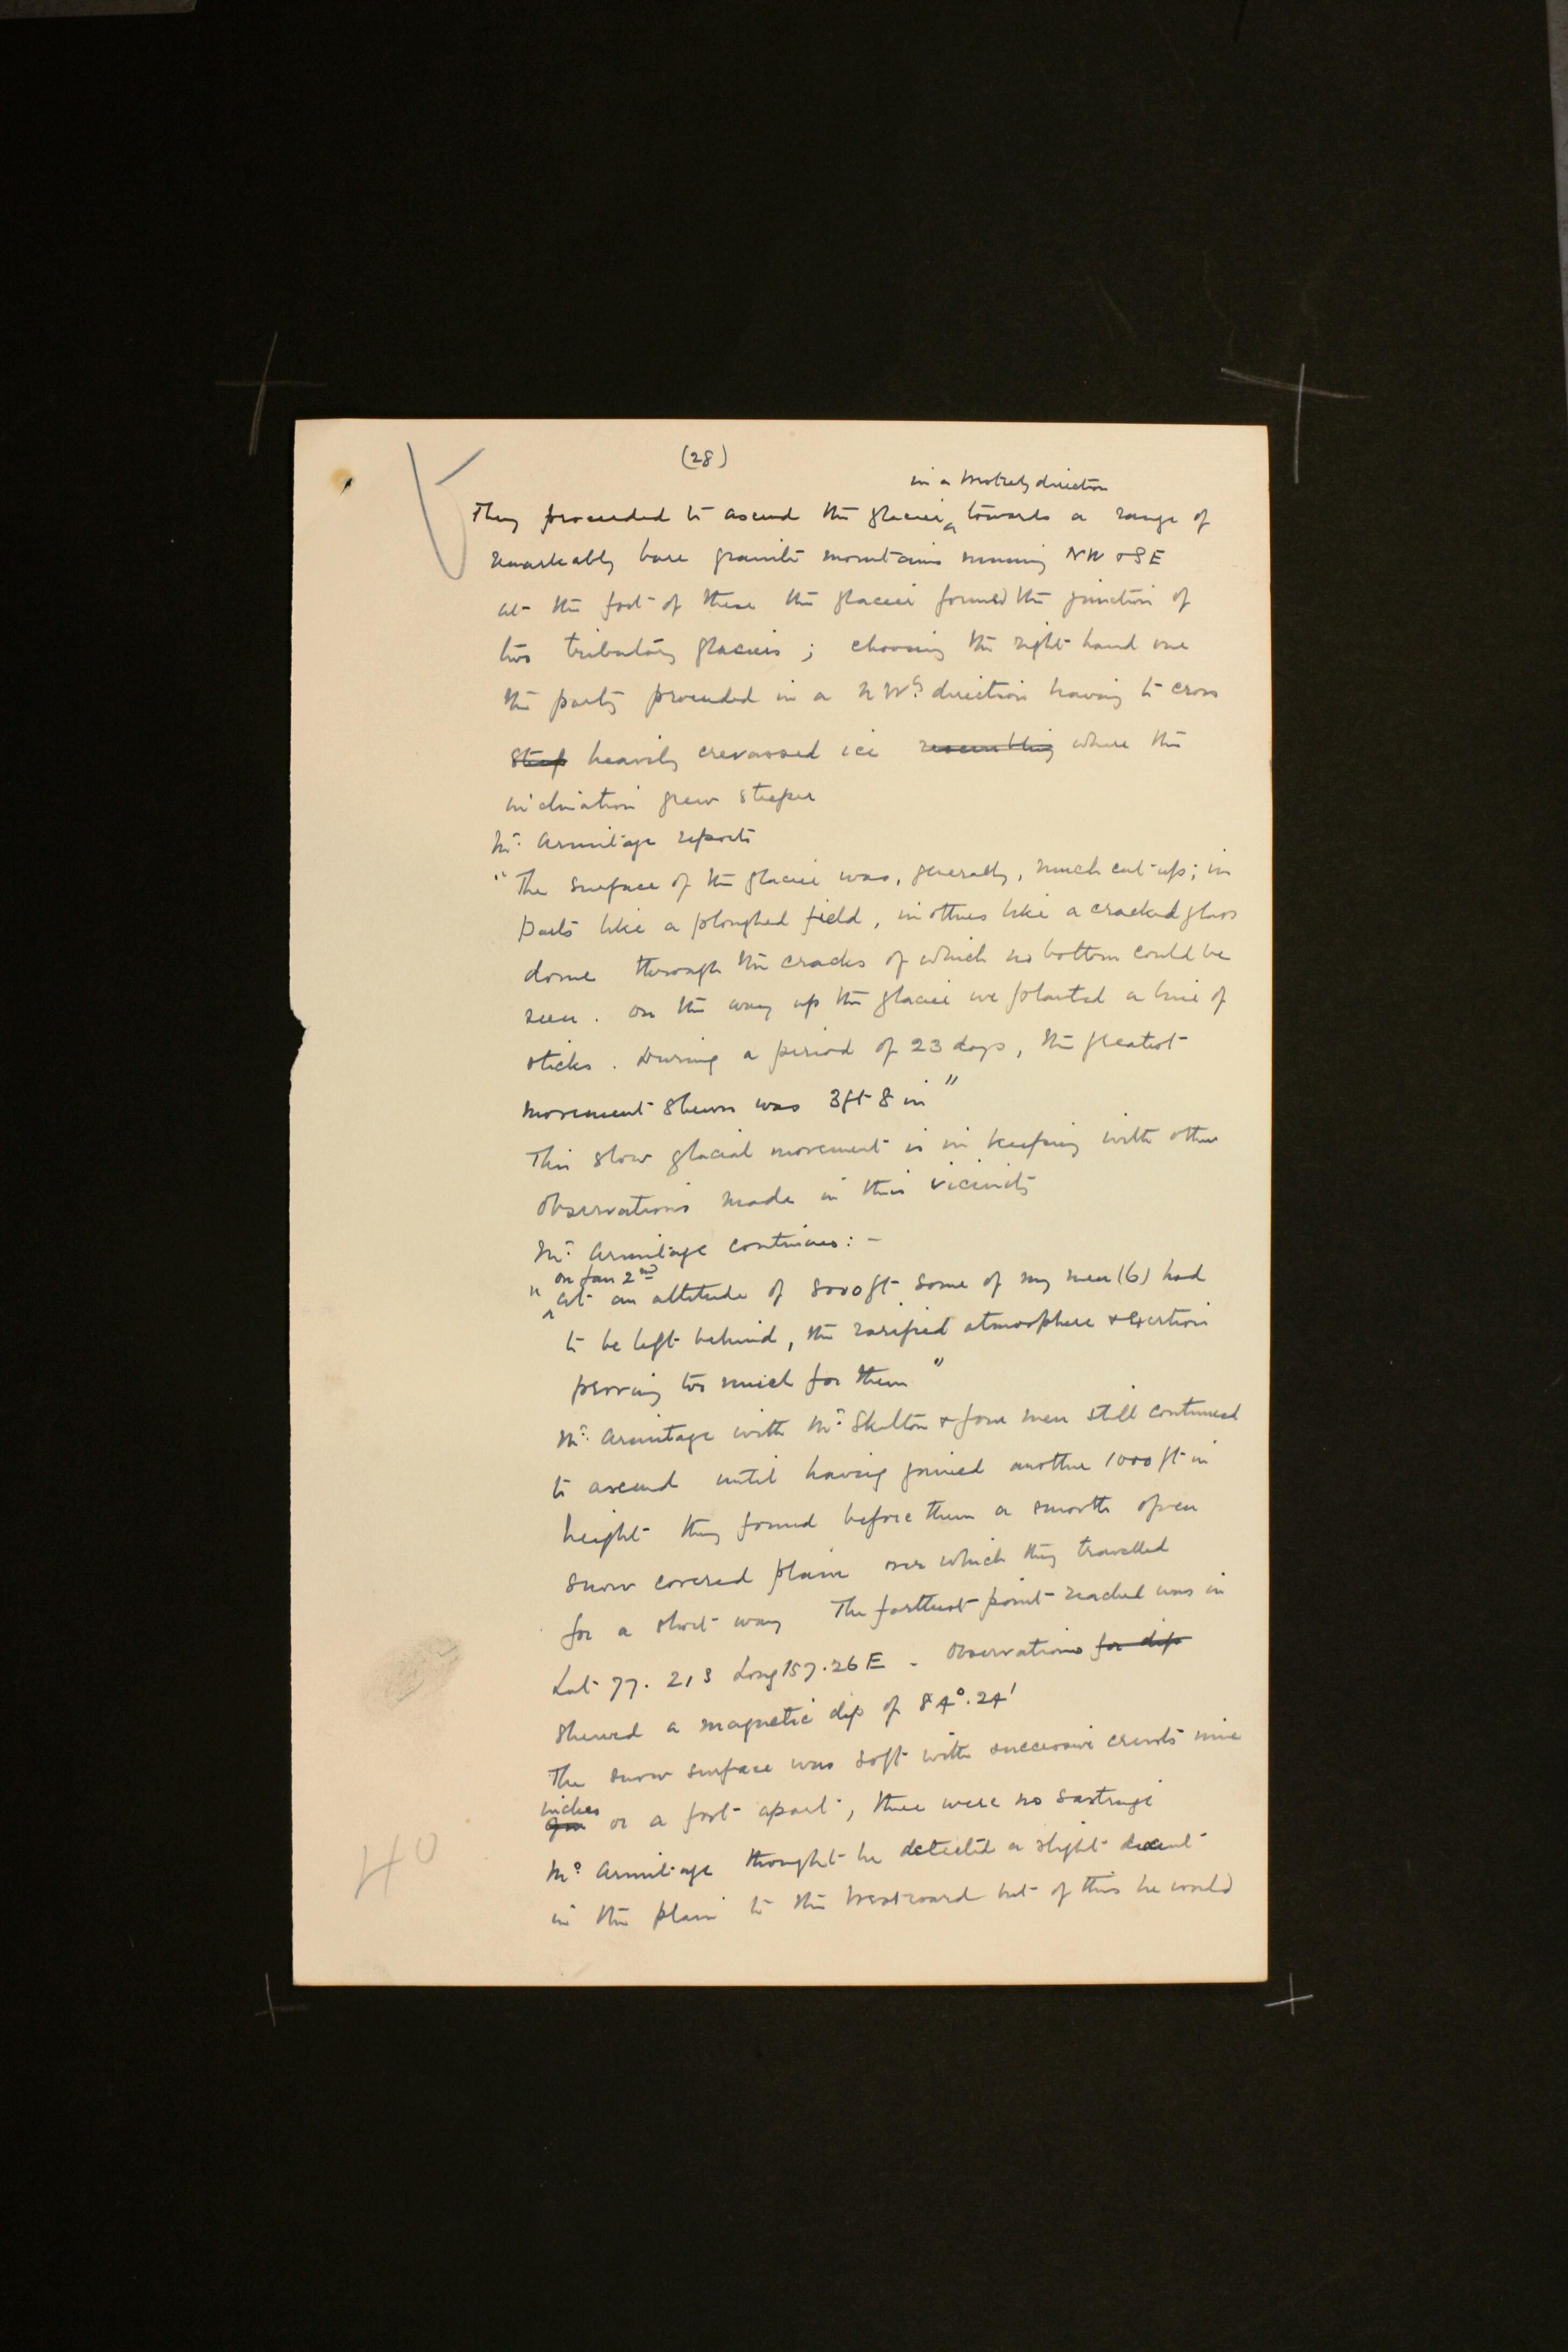 (28)
in a Westerly direction
They proceeded to ascend the glacier ^ towards a range of
remarkably bare granite mountains running NW & SE
at the foot of these the glacier formed the junction of
two tributary glaciers ; choosing the right hand one
the party proceeded in a NWly direction having to cross
steep heavily crevassed ice resembling where the
inclination grew steeper
Mr Armitage reports
"The surface of the glacier was, generally, much cut up; in
parts like a ploughed field, in others like a cracked glass
dome through the cracks of which no bottom could be
seen. On the way up the glacier we planted a line of
sticks. During a period of 23 days, the greatest
movement shewn was 3ft 8 in"
This slow glacial movement is in keeping with other
observations made in this vicinity
Mr Armitage continues: -
on Jan 2nd
" ^ at an altitude of 8000ft some of my men (6) had
to be left behind, the rarified atmosphere & exertion
proving too much for them "
Mr Armitage with Mr Skelton & four men still continued
to ascend until having gained another 1000 ft in
height they found before them a smooth open
snow covered plain over which they travelled
for a short way The farthest point reached was in
Lat 77. 21 S Long 157.26 E . Observations for dip
shewed a magnetic dip of 84°.24'
The snow surface was soft with successive crusts nine
inches
or a foot apart, there were no sastrugi
Mr Armitage thought he detected a slight descent
in the plain to the Westward but of this he could
40